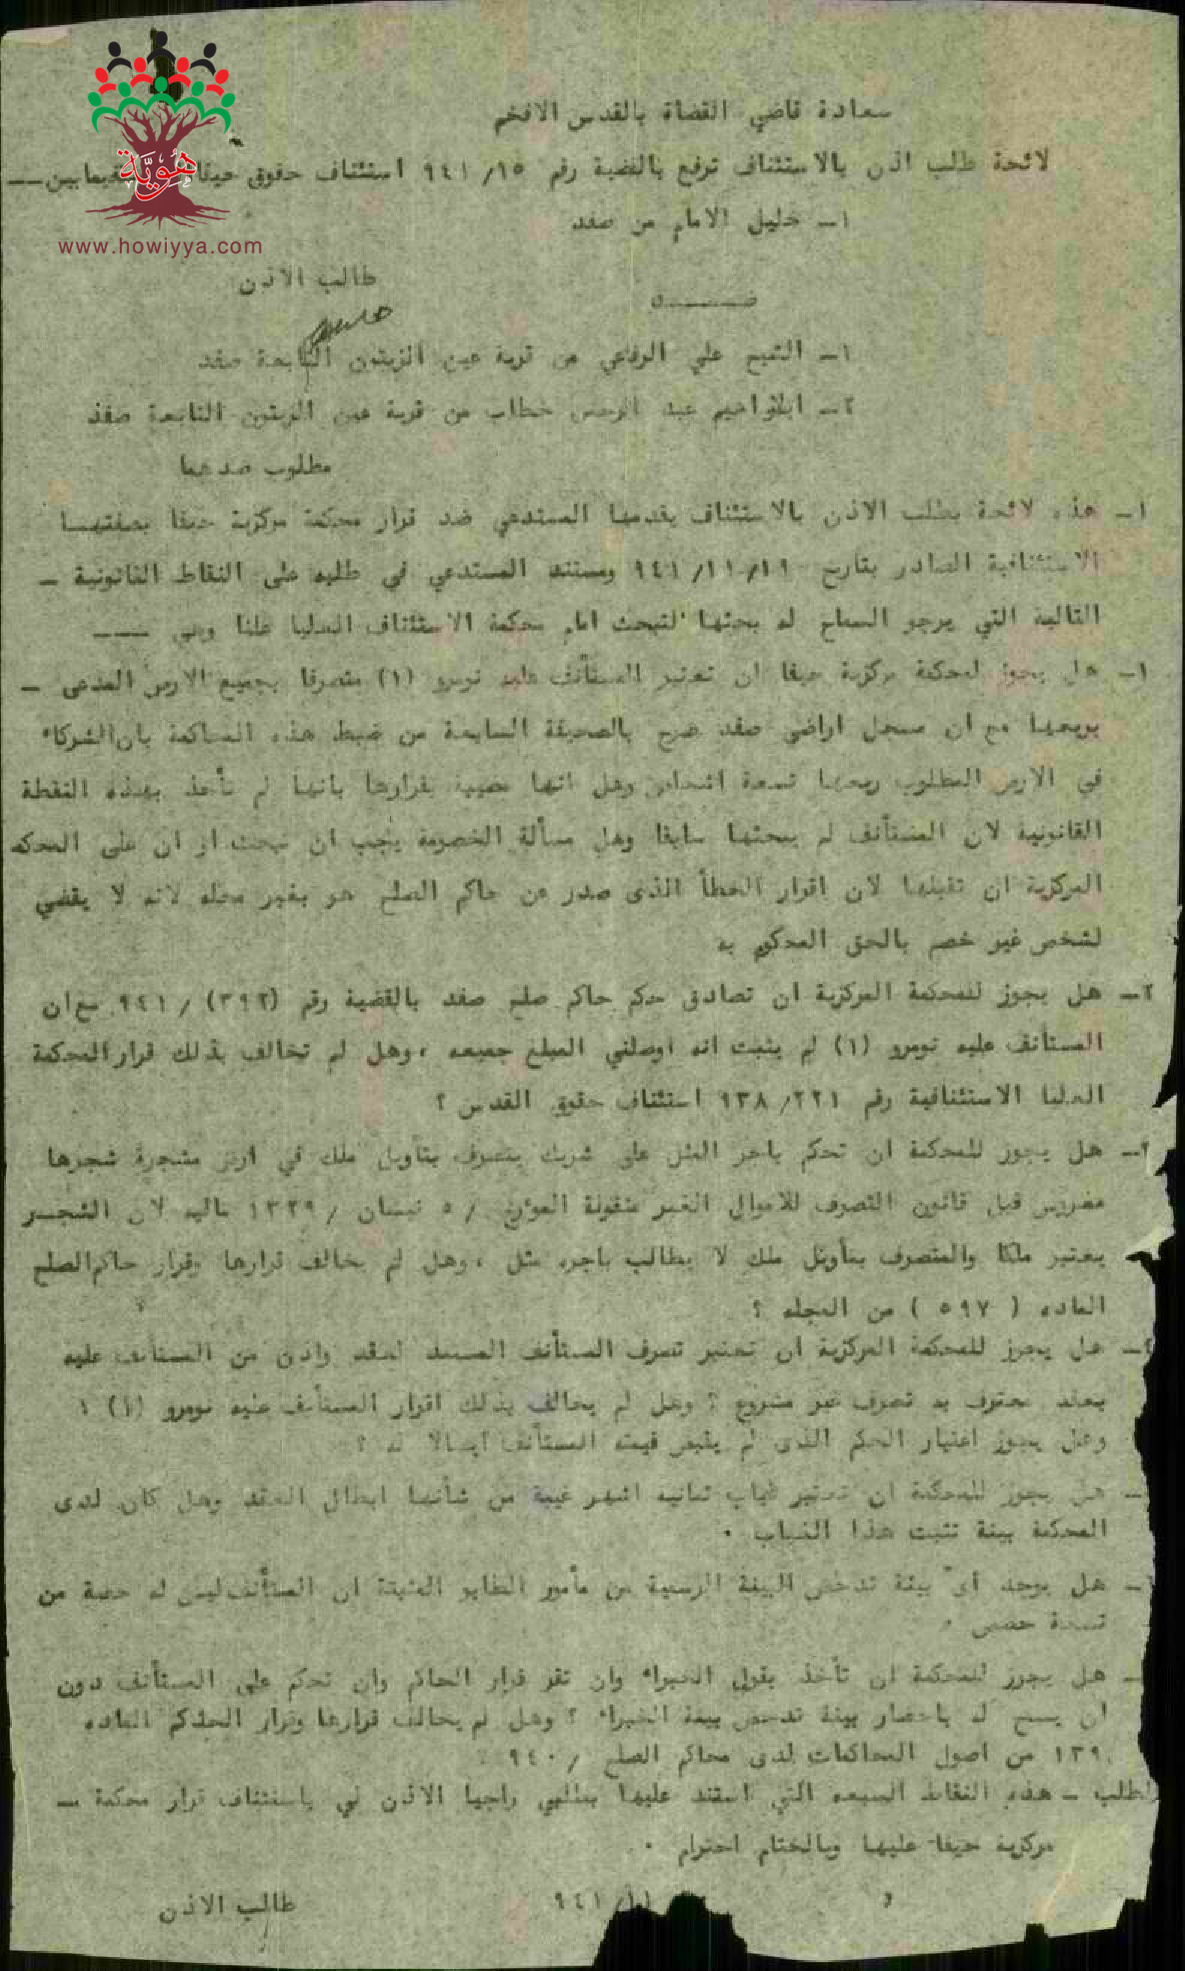 سعادة قاضي القضاة بالقدس الافخم
لائحة طلب اذن بالاستئناف ترفع بالقضية رقم ٩٤١/١٥ استئناف حقوق حيفا فيما بين ــ
هُوِيَّة
www.howiyya.com
١ـ خليل الامام من صفد
طالب الاذن
ضـــــد
١ـ الشيخ علي الرفاعي من قرية عين الزيتون التابعة صفد
٢ـ عبد الرحمن خطاب من قرية عين الزيتون التابعة صفد
مطلوب ضدهما
١ـ هذه لائحة بطلب الاذن بالاستئناف يقدمها المستدعي ضد قرار محكمة مركزية حيفا بصفتهـا
الاستئنافية الصادر بتاريخ ٩٤١/١١/١٩ ويستند المستدعي في طلبه على النقاط القانونية ـ
التالية التي يرجو السماح له بحثها لتبحث امام محكمة الاستئناف العليا علنا وهي ـــ
١ـ هل يجوز لمحكمة مركزية حيفا ان تعتبر المستأنف عليه نومرو (١) متصرفا بجميع الارض المدعى ـ
بريعها مع ان مسجل اراضي صفد صرح بالصحيفة السابعة من ضبط هذه المحاكمة بان الشركاء
في الارض المطلوب ريعها تسعة اشخاص وهل انها مصيبة بقرارها بانها لم تأخذ بهذه النقطة
القانونية لان المستأنف لم يبحثها سابقا وهل مسألة الخصومة يجب ان تبحث او ان على المحكمه
المركزية ان تقبلها لان اقرار الخطأ الذى صدر عن حاكم الصلح هو بغير محله لانه لا يقضي
لشخص غير خصم بالحق المحكوم به
٢ـ هل يجوز للمحكمة المركزية ان تصادق حكم حاكم صلح صفد بالقضية رقم (٣٩٢) / ٩٤١ مع ان
المستأنف عليه نومرو (١) لم يثبت انه اوصلني المبلغ جميعه ، وهل لم تخالف بذلك قرار المحكمة
العليا الاستئنافية رقم ٩٣٨/٢٢١ استئناف حقوق القدس ؟
٣ـ هل يجوز للمحكمة ان تحكم باجر المثل على شريك يتصرف بتأويل ملك في ارض مشجرة شجرها
مغروس قبل قانون التصرف للاموال الغير منقولة المؤرخ /٥ نيسان /١٣٢٩ ماليه لان الشجـر
يعتبر ملكا والمتصرف بتأويل ملك لا يطالب باجره مثل ، وهل لم يخالف قرارها وقرار حاكم الصلح
الماده ( ٥٩٧ ) من المجله ؟
٤ـ هل يجوز للمحكمة المركزية ان تعتبر تصرف المستأنف المستند لعقد واذن من المستأنف عليه
بعقد معترف به تصرف غير مشروع ؟ وهل لم يخالف بذلك اقرار المستأنف عليه نومرو (١) ؟
وهل يجوز اعتبار الحكم الذى لم يقبض قيمته المستأنف ايصالا له ؟
ـ هل يجوز للمحكمة ان تعتبر غياب ثمانيه اشهر غيبة من شأنها ابطال العقد وهل كان لدى
المحكمة بينة تثبت هذا الغياب .
ـ هل يوجد أى بينة تدحض البينة الرسمية من مأمور الطابو المثبتة ان المستأنف ليس له حصة من
تسعة حصص .
ـ هل يجوز للمحكمة ان تأخذ بقول الخبراء وان تقر قرار الحاكم وان تحكم على المستأنف دون
ان يسمح له باحضار بينة تدحض بينة الخبراء ؟ وهل لم يخالف قرارها وقرار الحاكم الماده
١٣٩ من اصول المحاكمات لدى محاكم الصلح / ٩٤٠ .
لطلب ـ هذه النقاط السبعه التي استند عليها بطلبي راجيا الاذن لي باستئناف قرار محكمة ـ
مركزية حيفا عليها وبالختام احترام .
٩٤١/١١
طالب الاذن